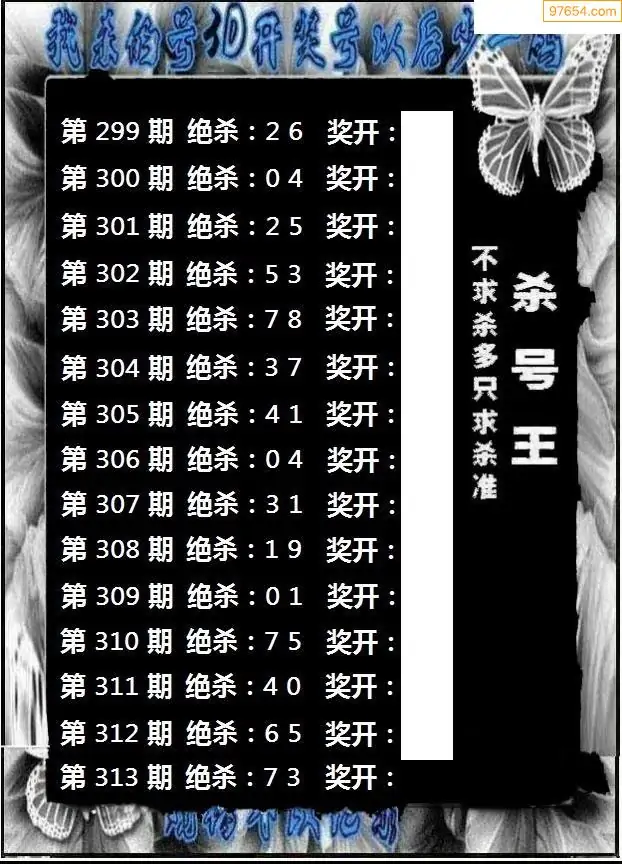 97654.com
第 299 期 绝杀：2 6 奖开：
第 300 期 绝杀：0 4 奖开：
第 301 期 绝杀：2 5 奖开：
第 302 期 绝杀：5 3 奖开：
第 303 期 绝杀：7 8 奖开：
第 304 期 绝杀：3 7 奖开：
第 305 期 绝杀：4 1 奖开：
第 306 期 绝杀：0 4 奖开：
第 307 期 绝杀：3 1 奖开：
第 308 期 绝杀：1 9 奖开：
第 309 期 绝杀：0 1 奖开：
第 310 期 绝杀：7 5 奖开：
第 311 期 绝杀：4 0 奖开：
第 312 期 绝杀：6 5 奖开：
第 313 期 绝杀：7 3 奖开：
杀号王
不求杀多只求杀准